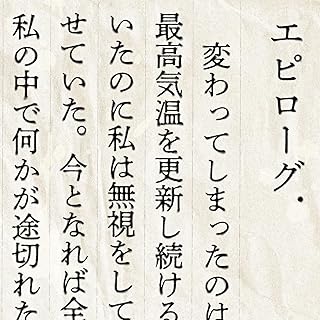 エピローグ.
変わってしまったのは
最高気温を更新し続ける
いたのに私は無視をして
せていた。今となれば全
私の中で何かが途切れた